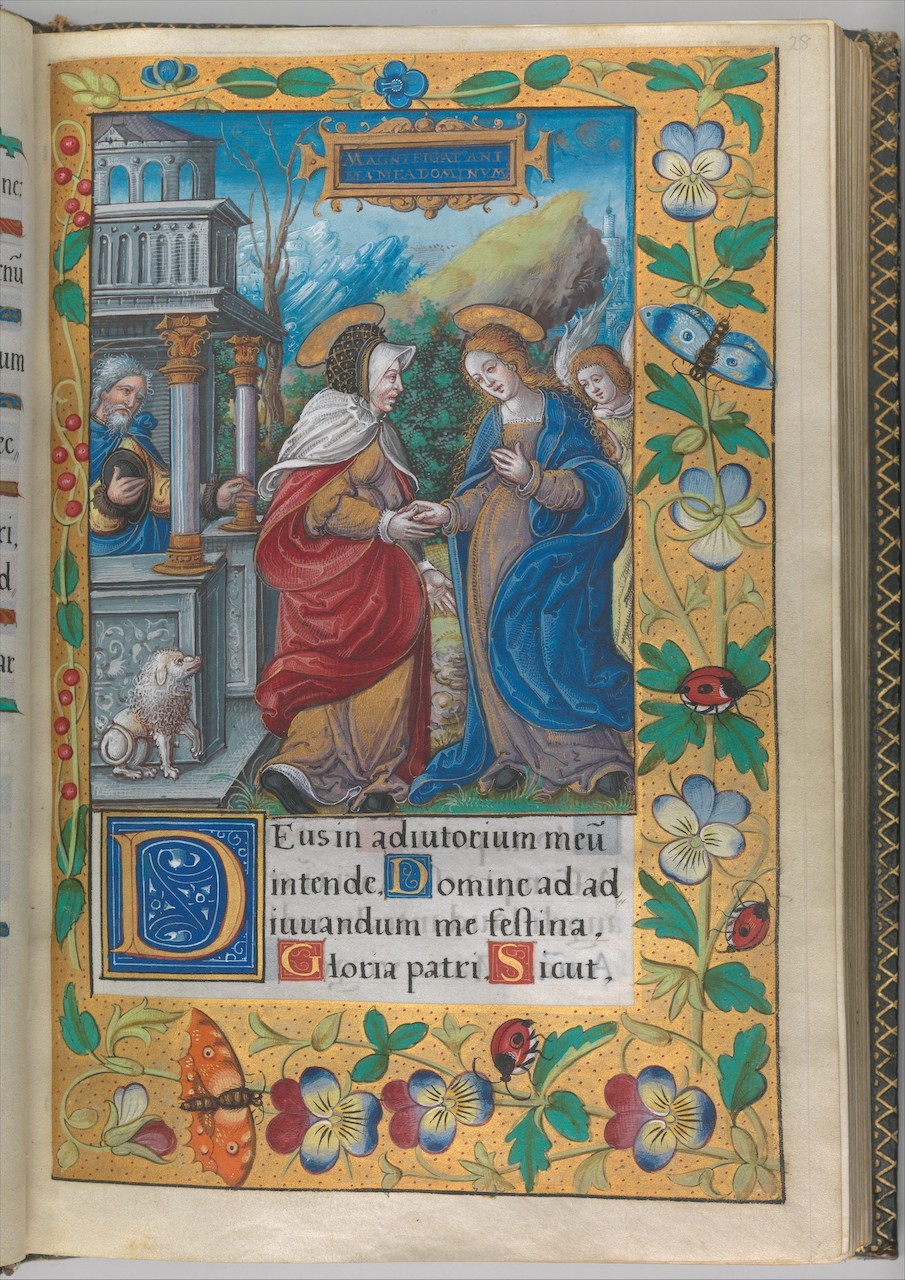 28
MAGNIFICAT ANI
MA MEA DOMINVM
DEus in adiutorium meū
intende. Domine ad ad
iuuandum me festina.
Gloria patri. Sicut.